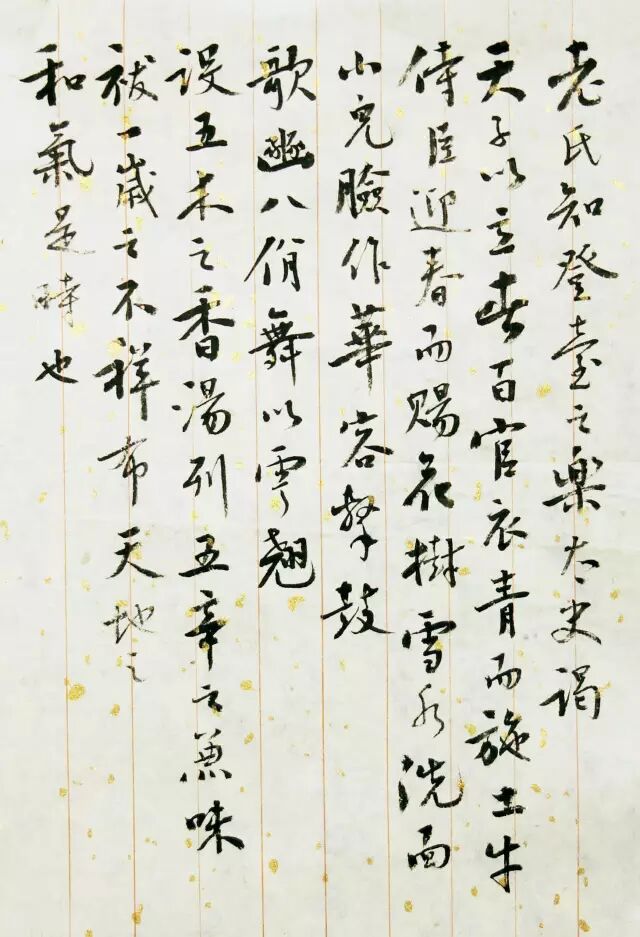 老氏知登臺之樂太史謁
天子以立春百官衣青而施土牛
侍臣迎春而賜花樹雪水洗面
小兒臉作華容擊鼓
歌豳八佾舞以雲翹
設五木之香湯列五辛之兼味
祓一歲之不祥布天地之
和氣是時也